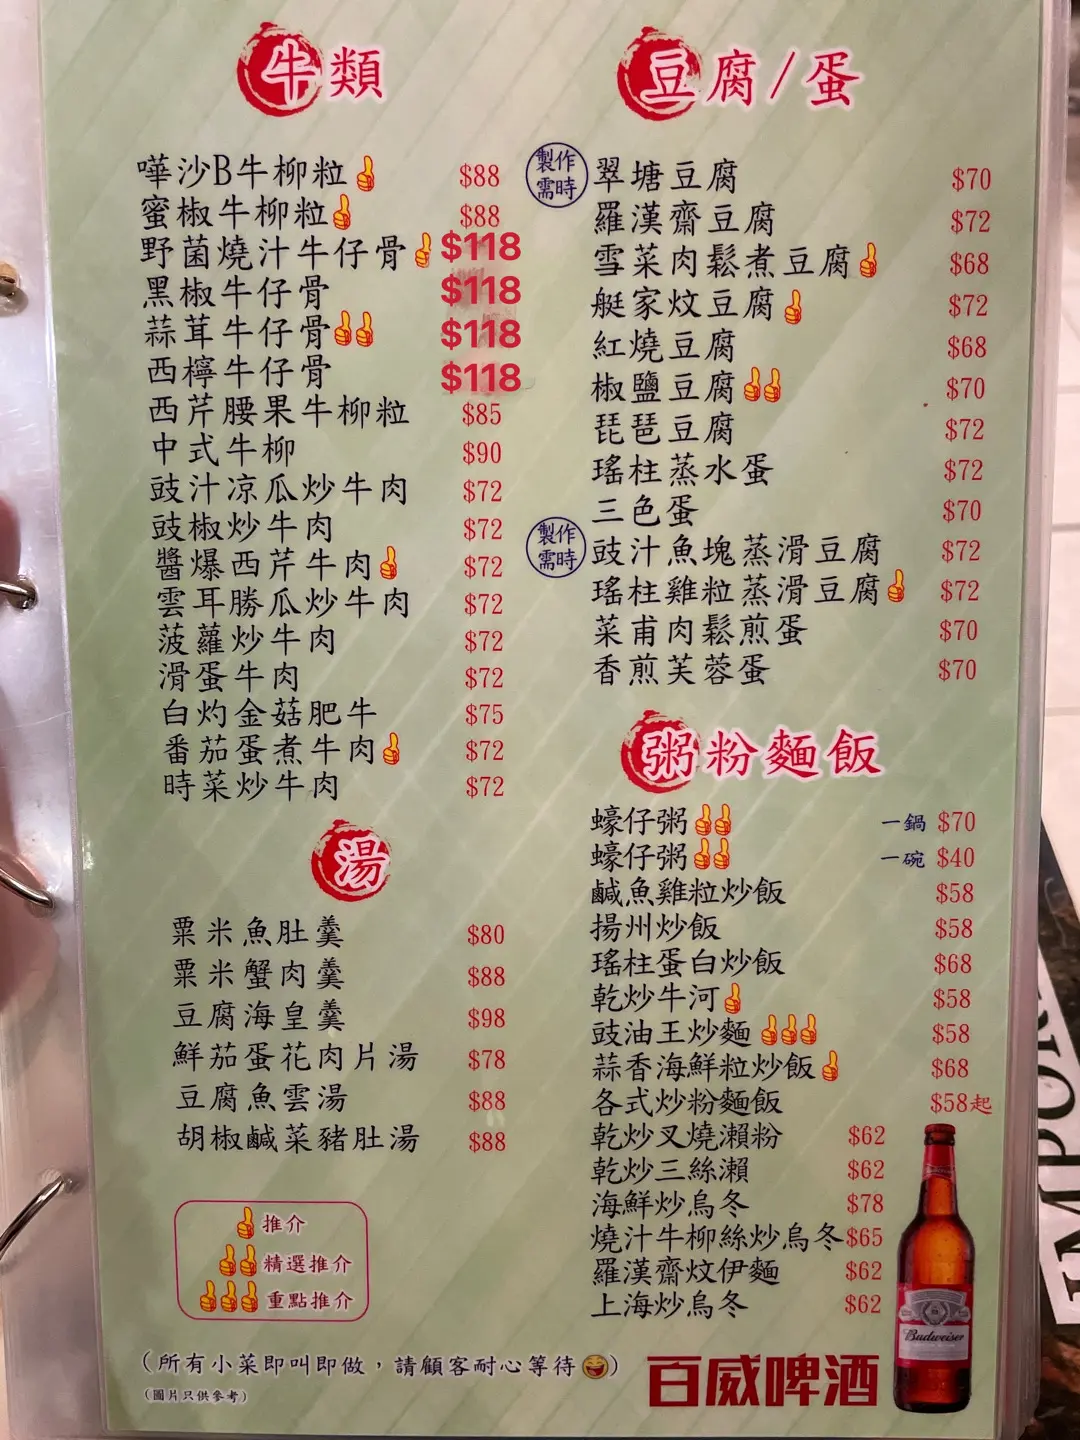 牛類
嘩沙B牛柳粒 $88
蜜椒牛柳粒 $88
野菌燒汁牛仔骨 $118
黑椒牛仔骨 $118
蒜茸牛仔骨 $118
西檸牛仔骨 $118
西芹腰果牛柳粒 $85
中式牛柳 $90
豉汁凉瓜炒牛肉 $72
豉椒炒牛肉 $72
醬爆西芹牛肉 $72
雲耳勝瓜炒牛肉 $72
菠蘿炒牛肉 $72
滑蛋牛肉 $72
白灼金菇肥牛 $75
番茄蛋煮牛肉 $72
時菜炒牛肉 $72
湯
粟米魚肚羹 $80
粟米蟹肉羹 $88
豆腐海皇羹 $98
鮮茄蛋花肉片湯 $78
豆腐魚雲湯 $88
胡椒鹹菜豬肚湯 $88
推介
精選推介
重點推介
(所有小菜即叫即做，請顧客耐心等待😄)
(圖片只供參考)
豆腐/蛋
製作需時 翠塘豆腐 $70
羅漢齋豆腐 $72
雪菜肉鬆煮豆腐 $68
艇家炆豆腐 $72
紅燒豆腐 $68
椒鹽豆腐 $70
琵琶豆腐 $72
瑤柱蒸水蛋 $72
三色蛋 $70
製作需時 豉汁魚塊蒸滑豆腐 $72
瑤柱雞粒蒸滑豆腐 $72
菜甫肉鬆煎蛋 $70
香煎芙蓉蛋 $70
粥粉麵飯
蠔仔粥 一鍋 $70
蠔仔粥 一碗 $40
鹹魚雞粒炒飯 $58
揚州炒飯 $58
瑤柱蛋白炒飯 $68
乾炒牛河 $58
豉油王炒麵 $58
蒜香海鮮粒炒飯 $68
各式炒粉麵飯 $58起
乾炒叉燒瀨粉 $62
乾炒三絲瀨 $62
海鮮炒烏冬 $78
燒汁牛柳絲炒烏冬 $65
羅漢齋炆伊麵 $62
上海炒烏冬 $62
Budweiser
百威啤酒